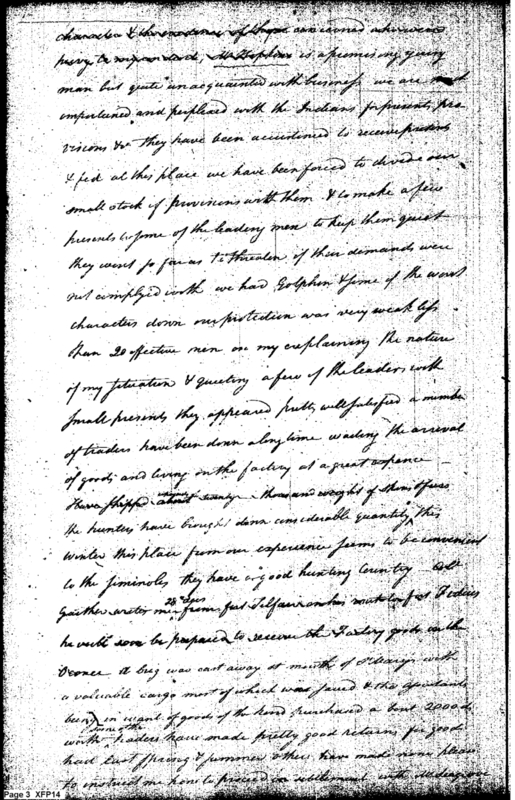 character & the evidence of those concerned who were
privy to
Mr Hopkins is a promising young
man but quite unacquainted with business we are most
importuned and perplexed with the Indians for presents, pro
visions &c they have been accustomed to receive presents
& fed at this place we have been forced to divide our
small stock of provisions with them & to make a few
presents to some of the leading men to keep them quiet
they went so far as to threaten if their demands were
not complyed with we had Golphin & some of the worst
characters down our protection was very weak less
than 20 effective men on my explaining the nature
of my situation & quieting a few of the leaders with
small presents they appeared pretty well satisfied a number
of traders have been down a long time waiting the arrival
of goods and living in the factory at a great expence
Have shipped about twenty thousand weight of skins & furs
the hunters have brought down considerable quantity this
winter this place from our experience seems to be convenient
to the siminoles they have a good hunting Country Colo
Gaither wrote me 26 Decr from fort
he will soon be prepared to receive the Factory goods on the
Oconee A brig was cast away at mouth of St Marys with
a valuable cargo most of which was saved & the
being in want of goods of the kind purchased about 2000 ds
worth some of the traders have made pretty good returns for goods
had last spring & summer others have made none please
to instruct me how to proceed on settlement with
Page 3 XFP14